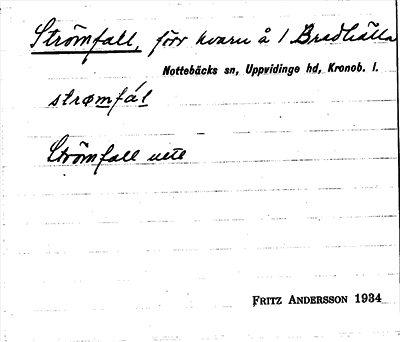 Strömfall, förr kvarn å 1 Bradhälla
Nottebäcks sn, Uppvidinge hd, Kronob. l.
strømfál
Strömfall vete
FRITZ ANDERSSON 1934